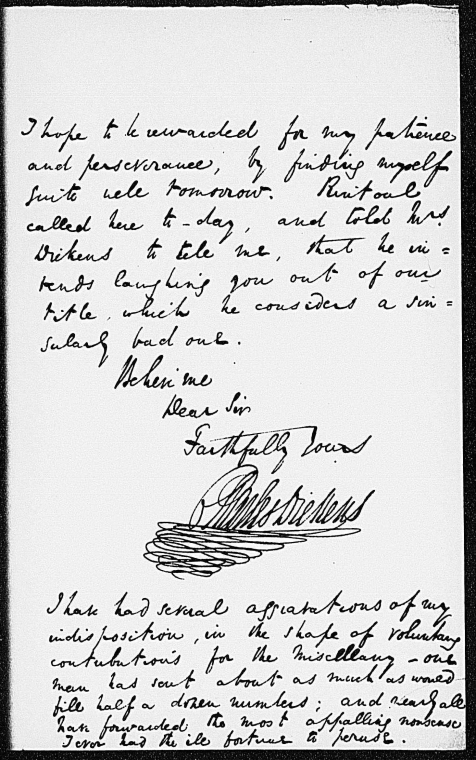 I hope to be rewarded for my patience
and perseverance, by finding myself
quite well tomorrow. Rintoul
called here to-day, and told Mrs.
Dickens to tell me, that he in=
tends laughing you out of our
title, which he considers a sin=
gularly bad one.
Believe me
Dear Sir
Faithfully Yours
Charles Dickens
I have had several aggravations of my
indisposition, in the shape of voluntary
contributions for the Miscellany - one
man has sent about as much as would
fill half a dozen numbers; and nearly all
have forwarded the most appalling nonsense
I ever had the ill fortune to peruse.